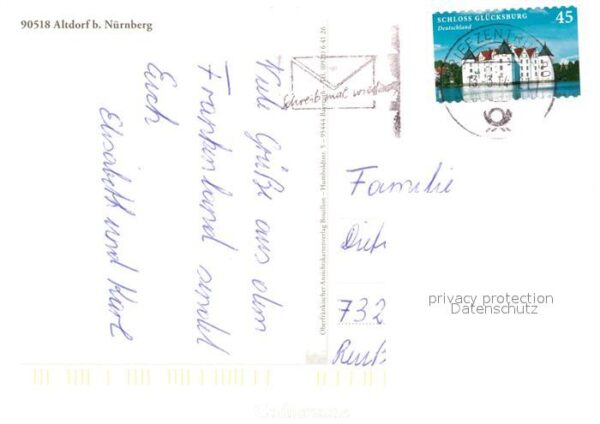 90518 Altdorf b. Nürnberg
Viele Grüße aus dem
Frankenland sendet
Euch
Elisabeth und Karl
Oberfränkischer Ansichtskartenverlag Bouillon – Humboldtstr. 5 – 95444
Schreib mal wieder
SCHLOSS GLÜCKSBURG 45
Deutschland
BRIEFZENTRUM
Familie
Diet
732
privacy protection
Datenschutz